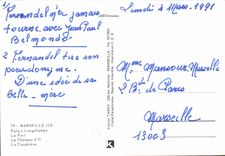 Fernandel n'a jamais
tourné avec Jean Paul
Belmondo
2 Fernandel fut son
pseudonyme.
D'une idée de sa
belle-mère
79 - MARSEILLE (13)
Palais Longchamps
Le Port
Le Château d'If
La Canebière
Lundi 4 Mars 1991
Mme Mansour Murielle
2 Bd de Paris
Marseille
13003